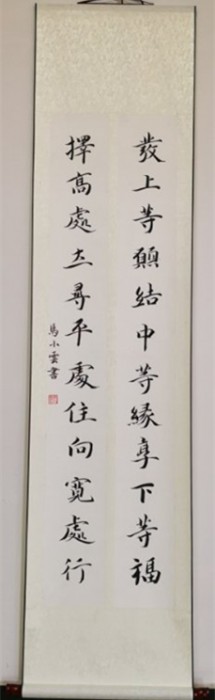 發上等願結中等緣享下等福
擇高處立尋平處住向寬處行
馬小雲書